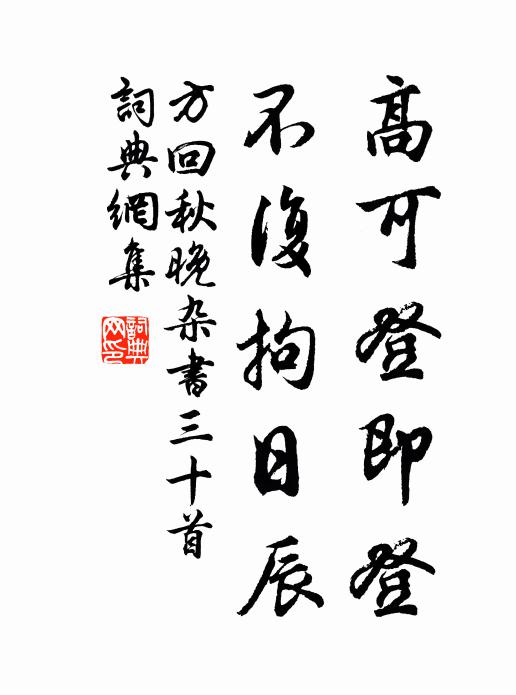 高可登即登
不復拘日辰
方回秋晚杂書三十首
詞典網集
詞典網印